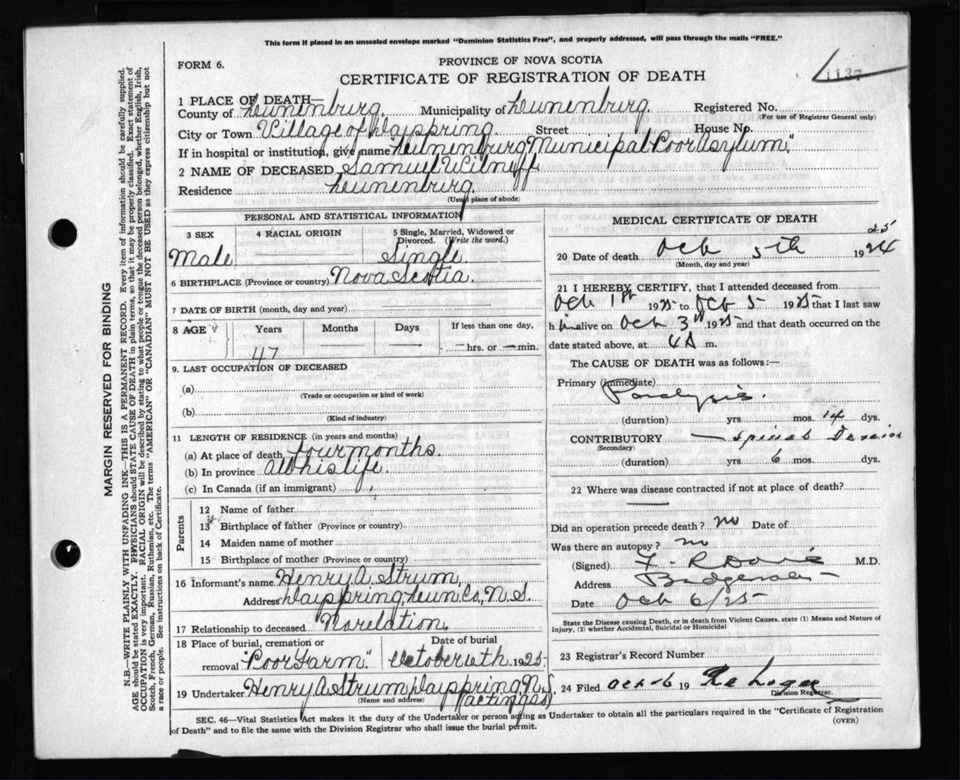 This form if placed in an unsealed envelope marked "Dominion Statistics Free", and properly addressed, will pass through the mails "FREE."
FORM 6.
PROVINCE OF NOVA SCOTIA
CERTIFICATE OF REGISTRATION OF DEATH
1137
1 PLACE OF DEATH—
County of Lunenburg Municipality of Lunenburg Registered No.
(For use of Registrar General only)
City or Town Village of Dayspring Street House No.
If in hospital or institution, give name Lunenburg Municipal Poor Asylum"
2 NAME OF DECEASED Samuel Wilneff
Residence Lunenburg
(Usual place of abode)
PERSONAL AND STATISTICAL INFORMATION
3 SEX 4 RACIAL ORIGIN 5 Single, Married, Widowed or Divorced. (Write the word.)
Male Single
6 BIRTHPLACE (Province or country) Nova Scotia
7 DATE OF BIRTH (month, day and year)
8 AGE Years Months Days If less than one day,
47 — — hrs. or — min.
9. LAST OCCUPATION OF DECEASED
(a)
(Trade or occupation or kind of work)
(b)
(Kind of industry)
11 LENGTH OF RESIDENCE (in years and months)
(a) At place of death four months.
(b) In province all his life
(c) In Canada (if an immigrant)
Parents
12 Name of father
13 Birthplace of father (Province or country)
14 Maiden name of mother
15 Birthplace of mother (Province or country)
16 Informant's name Henry A. Strum,
Address Dayspring, Lun. Co, N.S.
17 Relationship to deceased No relation.
18 Place of burial, cremation or removal "Poor Farm." Date of burial October 6th 1925
19 Undertaker Henry A Strum Dayspring, N.S.
(Name and address) (acting as)
MEDICAL CERTIFICATE OF DEATH
20 Date of death Oct 5th 1924 25
(Month, day and year)
21 I HEREBY CERTIFY, that I attended deceased from
Oct 1st 1925 to Oct 5 1925 that I last saw
him alive on Oct 3rd 1925 and that death occurred on the
date stated above, at 4 A m.
The CAUSE OF DEATH was as follows:—
Primary (immediate)
Paralysis.
(duration) yrs. mos. 14 dys.
CONTRIBUTORY — Spinal
(Secondary)
(duration) yrs. 6 mos. dys.
22 Where was disease contracted if not at place of death?
—
Did an operation precede death? no Date of
Was there an autopsy? no
(Signed) F. R Davis M.D.
Address Bridgewater
Date Oct 6/25
State the Disease causing Death, or in death from Violent Causes, state (1) Means and Nature of
Injury, (2) whether Accidental, Suicidal or Homicidal
23 Registrar's Record Number
24 Filed Oct-6 19
Division Registrar
SEC. 46—Vital Statistics Act makes it the duty of the Undertaker or person acting as Undertaker to obtain all the particulars required in the "Certificate of Registration
of Death" and to file the same with the Division Registrar who shall issue the burial permit. (OVER)
MARGIN RESERVED FOR BINDING
N.B.—WRITE PLAINLY WITH UNFADING INK—THIS IS A PERMANENT RECORD. Every item of information should be carefully supplied.
AGE should be stated EXACTLY. PHYSICIANS should STATE CAUSE OF DEATH in plain terms, so that it may be properly classified. Exact statement of
OCCUPATION is very important. RACIAL ORIGIN will be described by stating to what people or tongue the deceased person belonged, whether English, Irish,
Scotch, French, German, Russian, Ruthenian, etc. The terms "AMERICAN" OR "CANADIAN" MUST NOT BE USED as they express citizenship but not
a race or people. See instructions on back of Certificate.